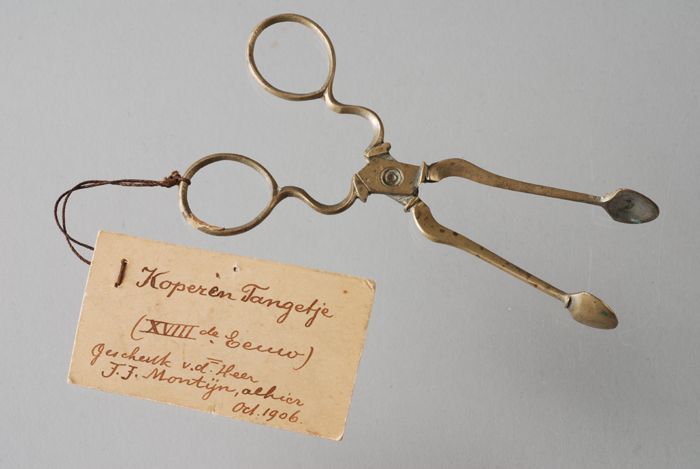 Koperen Tangetje
(XVIII de Eeuw)
Geschenk v.d. Heer
J.J. Montijn, alhier
Oct. 1906.